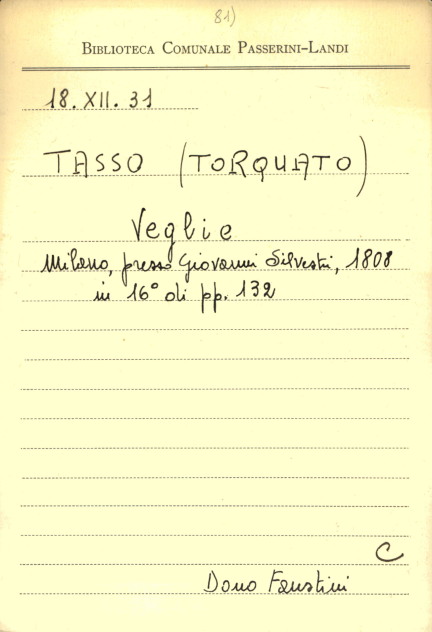 81)
BIBLIOTECA COMUNALE PASSERINI-LANDI
18. XII. 31
TASSO (TORQUATO)
Veglie
Milano, presso Giovanni Silvestri, 1808
in 16° di pp. 132
C
Dono Faustini